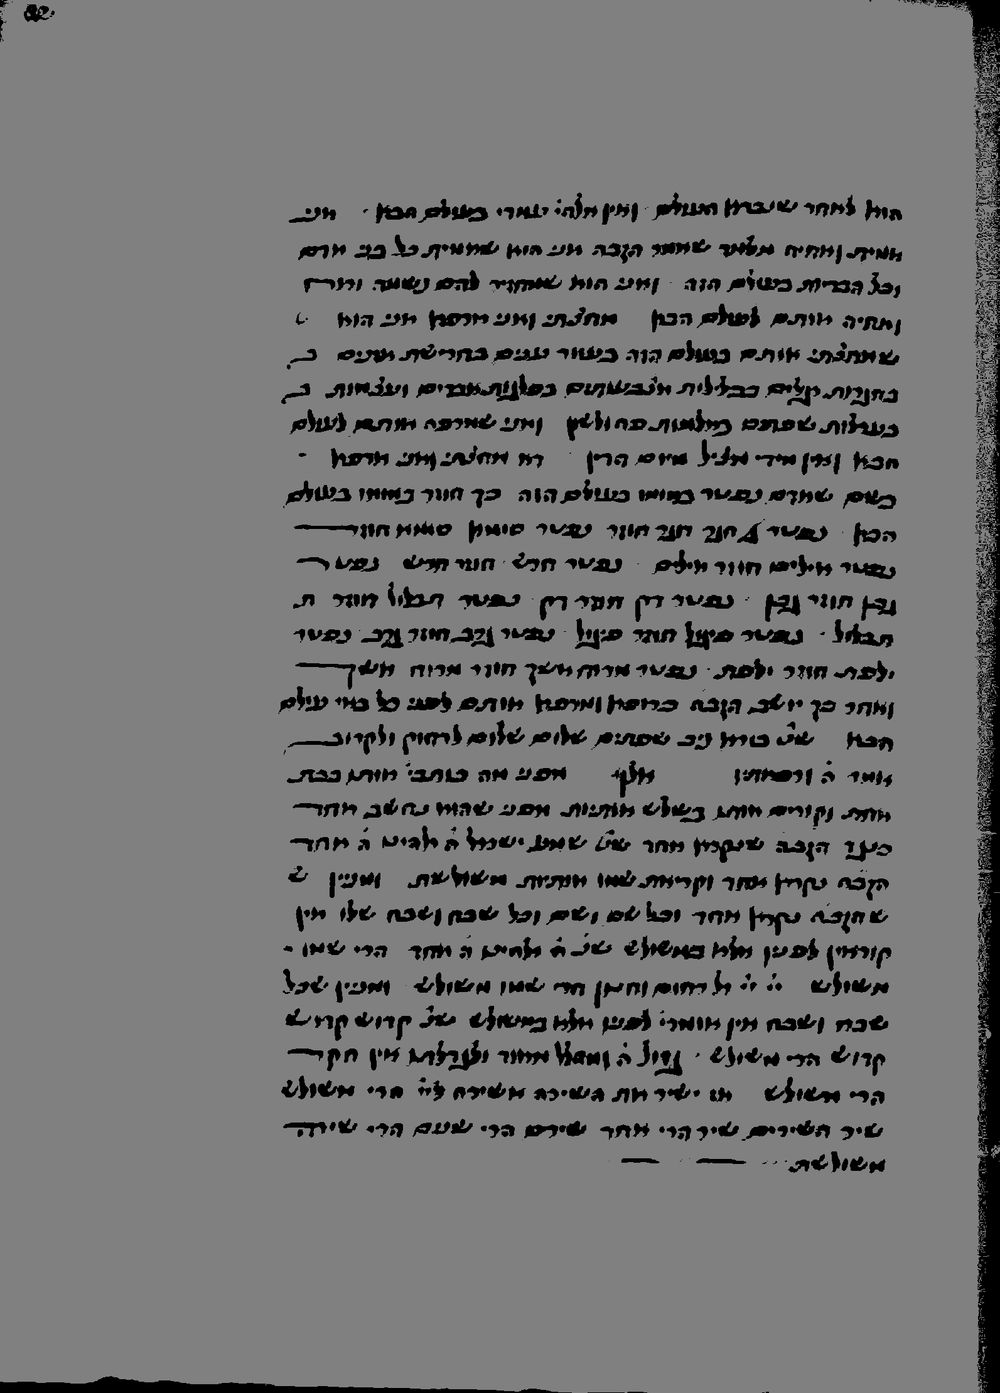 הוא לאחר שיברא העולם ואין אלהי עמדי בעולם הבא אני
ממית ומחיה מלמד שאמר הקבה אני הוא שממית כל בני אדם
וכל הבריות בעולם הזה ואני הוא שמחזיר להם נשמה ורוח
ומחיה אותם לעולם הבא מחצתי ואני ארפא אני הוא
שמחצתי אותם בעולם הזה בעוור עינים בחרישת אזנים
שפתים ואני שארפה אותם לעולם
הבא ואין מידי מציל מיום הדין
כשם שאדם נפטר במומו בעולם הזה כך חוזר במומו בעולם
הבא נפטר חגר חוזר חגר נפטר סומא סומא חוזר
נפטר אילים חוזר אילים נפטר חרש חוזר חרש נפטר
גבן חוזר גבן נפטר דק חוזר דק נפטר תבלול חוזר ת
תבלול נפטר חוזר נפטר גרב חוזר גרב נפטר
ילפת חוזר ילפת נפטר מרוח אשך חוזר מרוח אשך
ואחר כך יושב הקבה ברופא ומרפא אותם לפני כל באי עולם
הבא שנ בורא ניב שפתים שלום שלום לרחוק ולקרוב
אמר ה ורפאתיו אלף מפני מה כותבי אותו בבת
אחת וקורים אותו בשלש אותיות מפני שהוא נחשב אחד
כנגד הקבה שנקרא אחד שנ שמע ישראל ה אלהינו ה אחד
הקבה נקרא אחד וקריאת שמו אותיות משולשת ומניין ש
שהקבה נקרא אחד וכל שם ושם וכל שבח ושבח שלו אין
קוראין לפניו אלא במשולש שנ ה אלהינו ה אחד הרי שמו
משולש יי יי אל רחום וחנון הרי שמו משולש ומניין שכל
שבח ושבח אין אומרי לפניו אלא במשולש שנ קדוש קדוש
קדוש הרי משולש גדול ה ומהלל מאוד ולגדלתו אין חקר
הרי משולש אז ישיר את השירה אשירה ליי הרי משולש
שיר השירים שיר הרי אחד שירים הרי שנים הרי שירה
משולשת